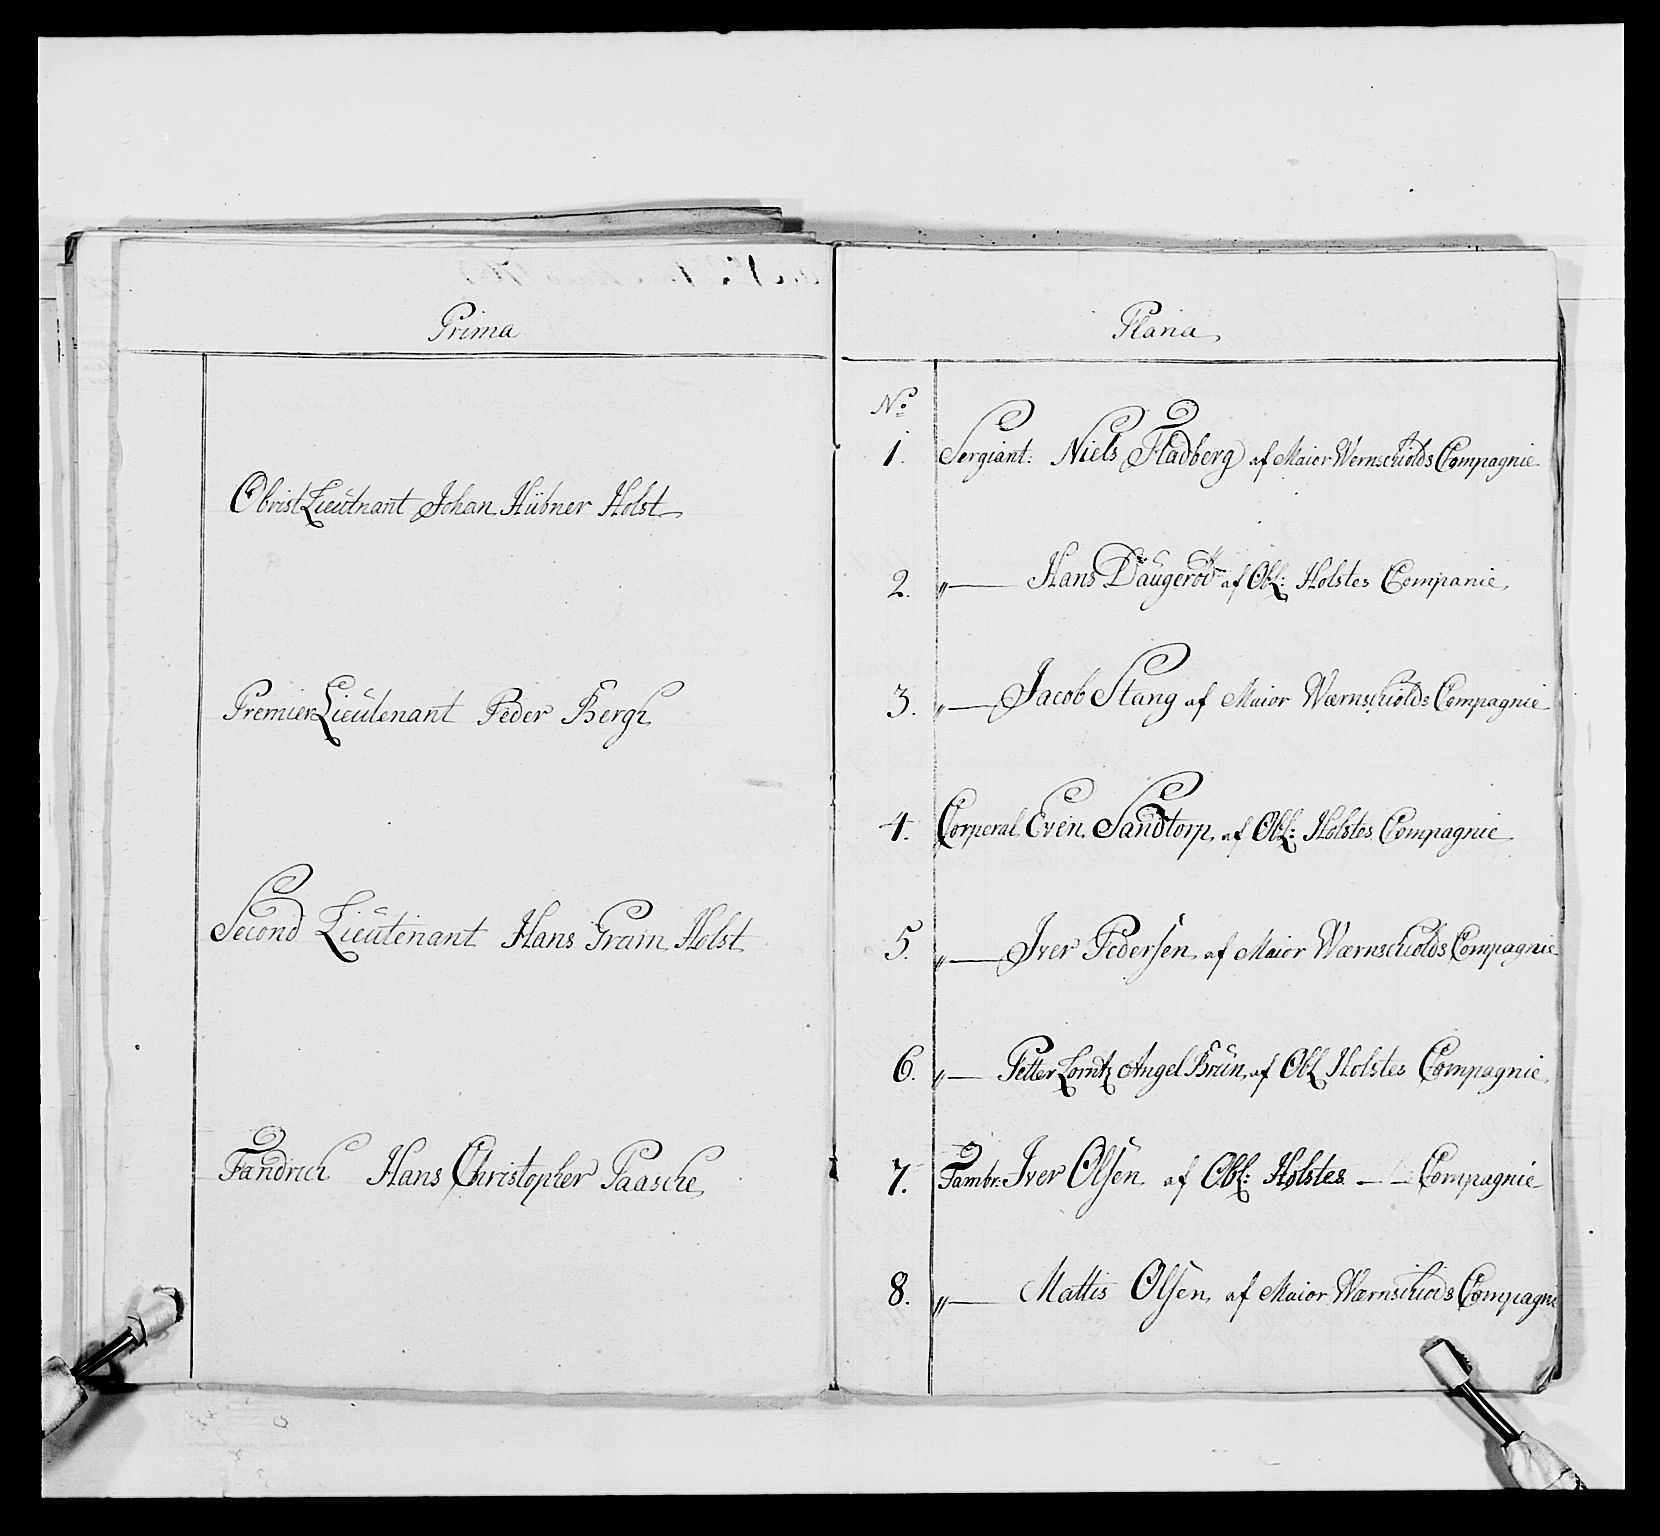 Prima
Obrist Lieutnant Johan Hübner Holst
Premier Lieutenant Peder Bergh
Second Lieutenant Hans Gram Holst
Fandrich Hans Christopher Paasche
Plana
No
1. Sergiant: Niels Fladberg af Maior Wernschiolds Compagnie
2. „— Hans af Obl: Holstes Companie
3. „— Jacob Stang af Maior Wærnschiolds Compagnie
4. Corperal Even Sandtorp af Obl: Holstes Compagnie
5. „— Iver Pedersen af Maior Wærnschiolds Compagnie
6. „— Petter Lorntz Angel Brün af Obl Holstes Compagnie
7. Tambr: Iver Olsen af Obl: Holstes — — Compagnie
8. „— Mattis Olsen af Maior Compagni